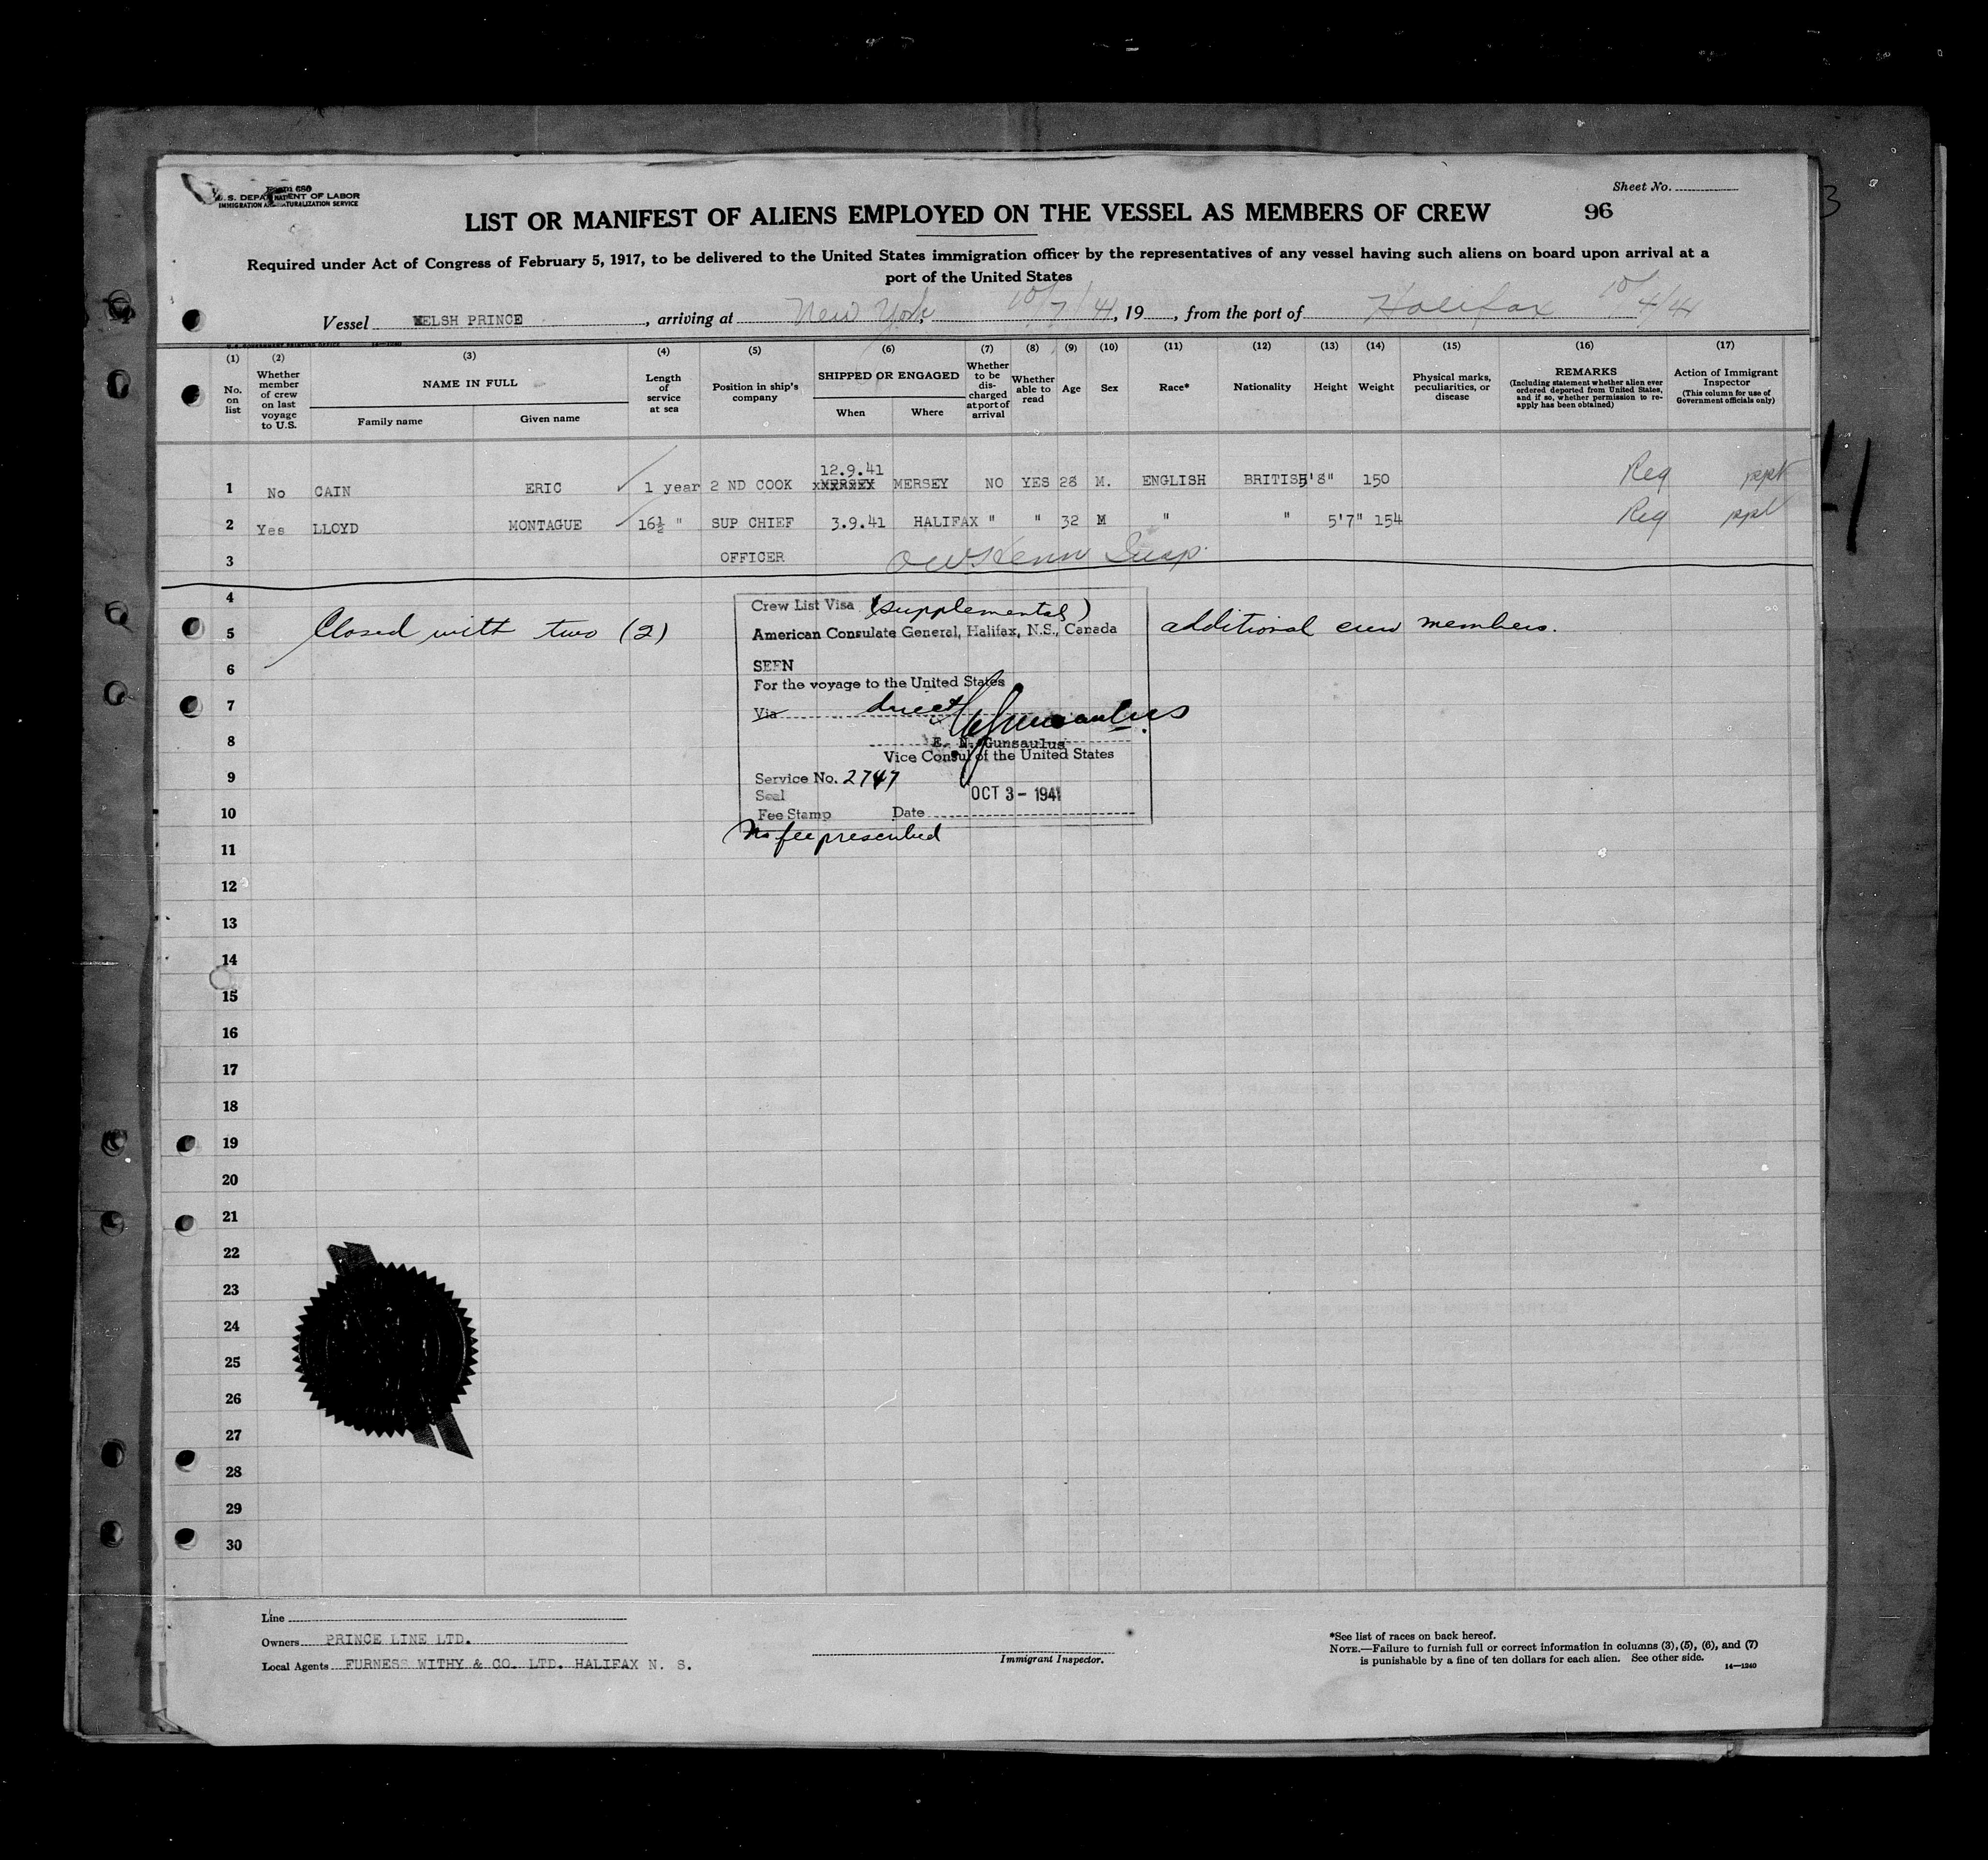 Form 680
U.S. DEPARTMENT OF LABOR
IMMIGRATION AND NATURALIZATION SERVICE
Sheet No.
LIST OR MANIFEST OF ALIENS EMPLOYED ON THE VESSEL AS MEMBERS OF CREW
96
Required under Act of Congress of February 5, 1917, to be delivered to the United States immigration officer by the representatives of any vessel having such aliens on board upon arrival at a
port of the United States
Vessel WELSH PRINCE, arriving at New York, 10/7/41, 19, from the port of Halifax 10/4/41
(1) (2) (3) (4) (5) (6) (7) (8) (9) (10) (11) (12) (13) (14) (15) (16) (17)
No. on list
Whether member of crew on last voyage to U.S.
NAME IN FULL
Family name
Given name
Length of service at sea
Position in ship's company
SHIPPED OR ENGAGED
When
Where
Whether to be discharged at port of arrival
Whether able to read
Age
Sex
Race*
Nationality
Height
Weight
Physical marks, peculiarities, or disease
REMARKS
(Including statement whether alien ever ordered deported from United States, and if so, whether permission to re-apply has been obtained)
Action of Immigrant Inspector
(This column for use of Government officials only)
12.9.41
1 No CAIN ERIC 1 year 2 ND COOK MERSEY MERSEY NO YES 28 M. ENGLISH BRITISH 5'8" 150 Reg ppt
2 Yes LLOYD MONTAGUE 16½ " SUP CHIEF 3.9.41 HALIFAX " " 32 M " " 5'7" 154 Reg ppt
3 OFFICER Insp.
4
5 Closed with two (2) additional crew members.
Crew List Visa (supplemental)
American Consulate General, Halifax, N.S., Canada
6 SEEN
For the voyage to the United States
7 Via direct
8 E. N. Gunsaulus
Vice Consul of the United States
9 Service No. 2747
Seal OCT 3 - 1941
10 Fee Stamp Date
No fee prescribed
11
12
13
14
15
16
17
18
19
20
21
22
23
24
25
26
27
28
29
30
Line
Owners PRINCE LINE LTD.
Local Agents FURNESS WITHY & CO. LTD. HALIFAX N. S.
Immigrant Inspector.
*See list of races on back hereof.
NOTE.—Failure to furnish full or correct information in columns (3), (5), (6), and (7)
is punishable by a fine of ten dollars for each alien. See other side.
14—1240